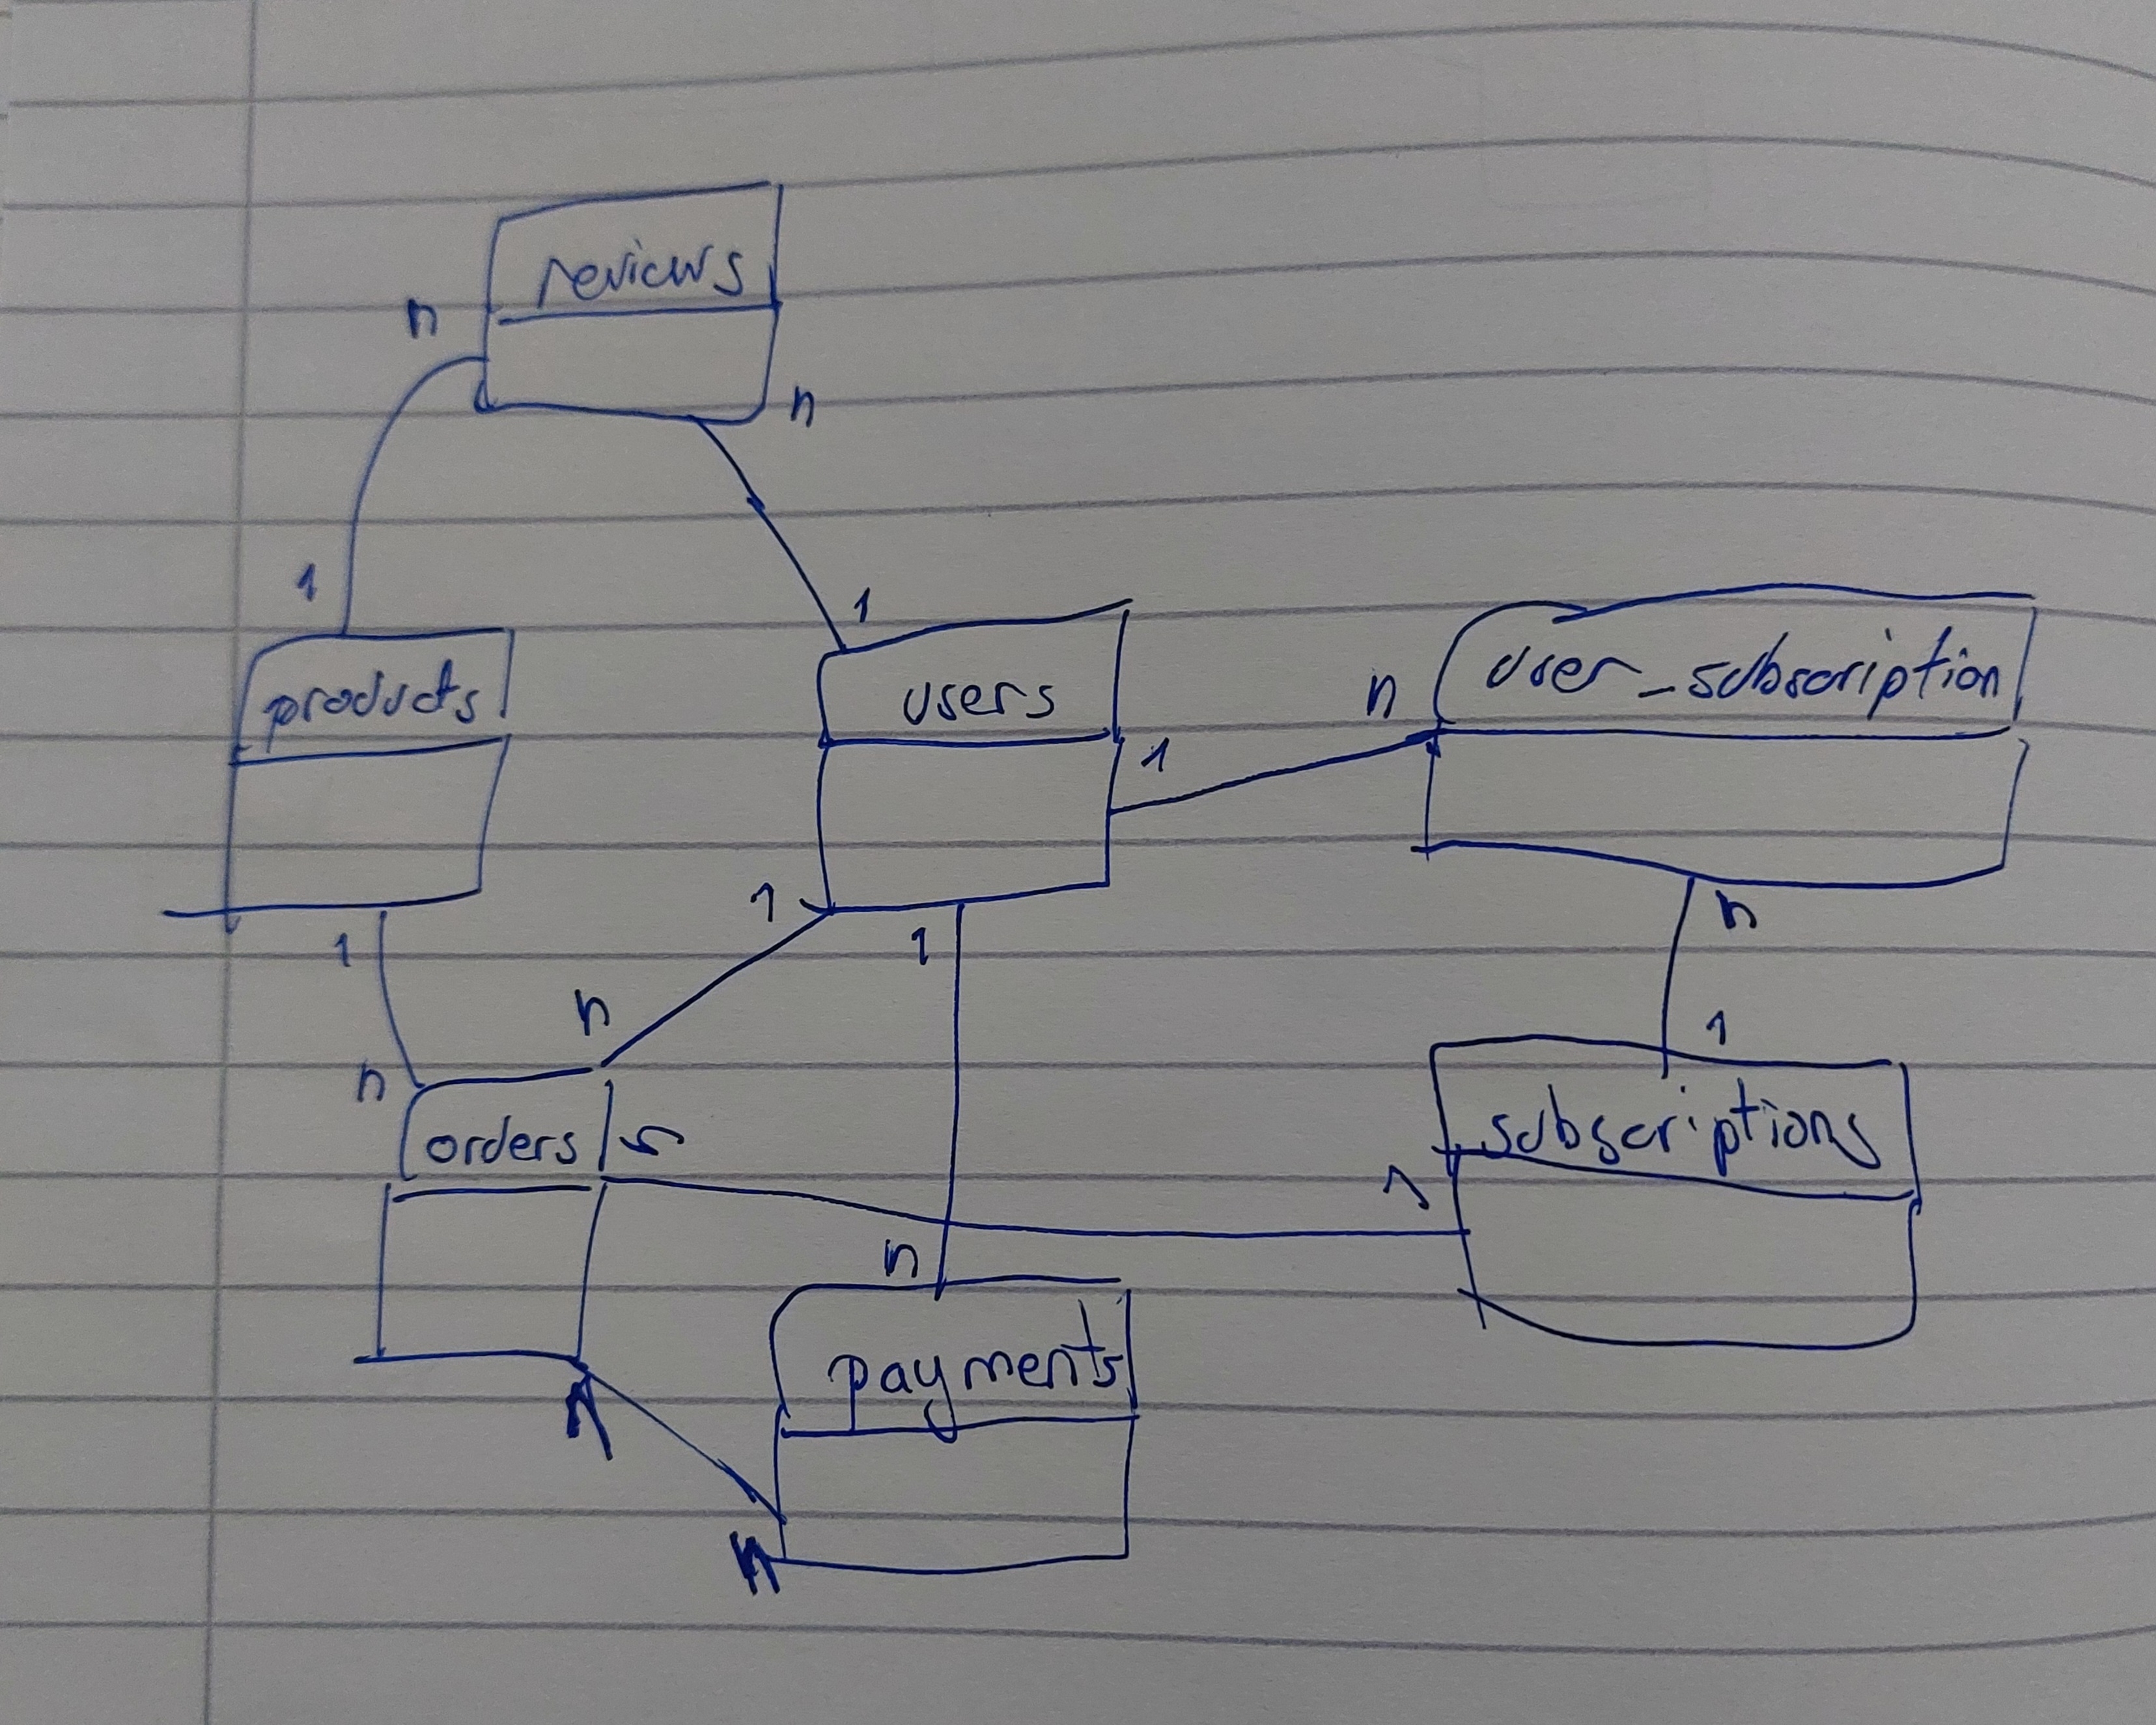 reviews
n
n
1
1
products
users
n
user_subscription
1
1
1
1
n
n
n
1
orders
subscriptions
1
n
payments
n